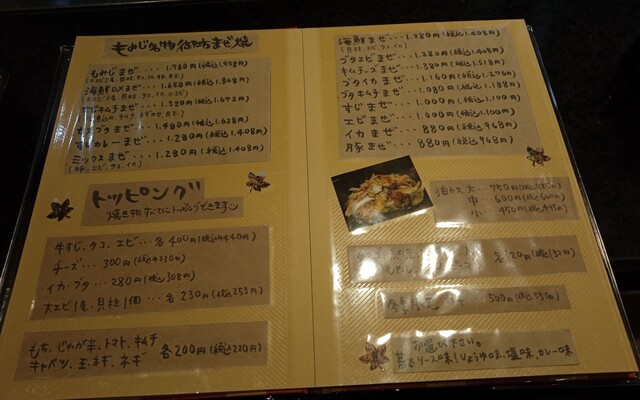 もみじ名物 街坊まぜ焼
もみじまぜ・・・1.780円(税込1.958円)
海鮮ロメまぜ・・・1.680円(税込1.848円)
キムチまぜ・・・1.520円(税込1.672円)
ブタまぜ・・・1.480円(税込1.628円)
カレーまぜ・・・1.280円(税込1.408円)
ミックスまぜ・・・1.280円(税込1.408円)
(豚、エビ、タコ、イカ)
トッピング
焼き物すべてにトッピングできます
牛すじ、タコ、エビ・・・各400円(税込440円)
チーズ・・・300円(税込330円)
イカ・ブタ・・・280円(税込308円)
大エビ1尾、貝柱1個・・・各230円(税込253円)
もち、じゃが芋、トマト、キムチ
キャベツ、玉ネギ、ネギ 各200円(税込220円)
海鮮まぜ・・・1.280円(税込1.408円)
(貝柱、エビ、タコ、イカ)
ブタエビまぜ・・・1.280円(税込1.408円)
キムチーズまぜ・・・1.380円(税込1.518円)
ブタイカまぜ・・・1.160円(税込1.276円)
ブタキムチまぜ・・・1.080円(税込1.188円)
すじまぜ・・・1.000円(税込1.100円)
エビまぜ・・・1.000円(税込1.100円)
イカまぜ・・・880円(税込968円)
豚まぜ・・・880円(税込968円)
油カス 大・・・750円
中・・・600円(税込660円)
小・・・450円(税込495円)
もやし 各120円(税込132円)
500円(税込550円)
お選び下さい。
基本ソース味!しょうゆ味、塩味、カレー味